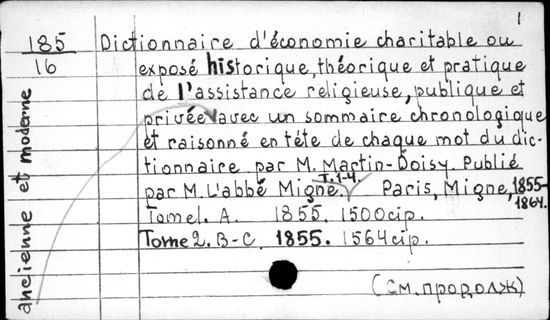 1
185 Dictionnaire d'économie charitable ou
16 exposé historique, théorique et pratique
de l'assistance religieuse, publique et
privée avec un sommaire chronologique
et raisonné en tête de chaque mot du dic-
tionnaire par M. Martin-Doisy. Publié
par M. L'abbé Migne. T. 1-4. Paris, Migne, 1855-
1864.
Tome 1. A. 1855. 1500 cip.
Tome 2. B-C. 1855. 1564 cip.
(см. продолж)
ancienne et moderne